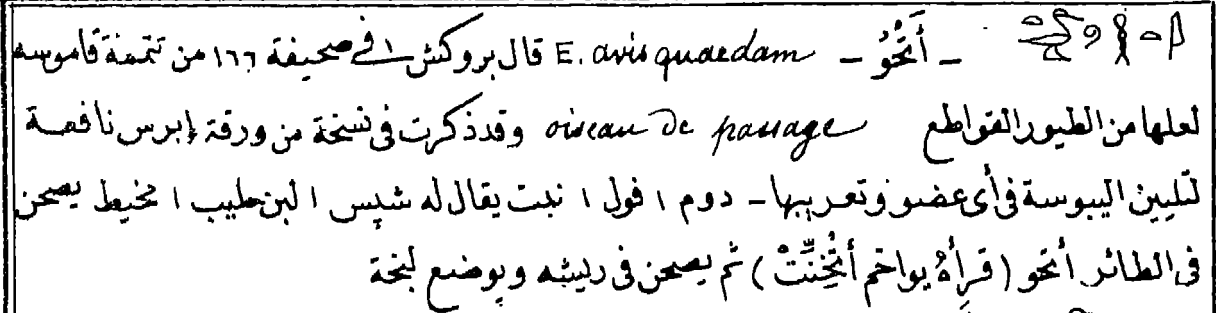 – أَتْخُوُ – E. avis quaedam قال بروكش فى صحيفة ١٦٦ من تتمة قاموسه
لعلها من الطيور القواطع oiseau de passage وقد ذكرت فى نسخة من ورقة إبرس نافعة
لتليين اليبوسة فى أى عضو وتعريبها – دوم ١ فول ١ نبت يقال له شپس ١ لبن حليب ١ مخيط يصحن
فى الطائر أتخو (قرأهُ يواخم أَتْخِنِّتْ) ثم يصحن فى ريشه ويوضع لبخة